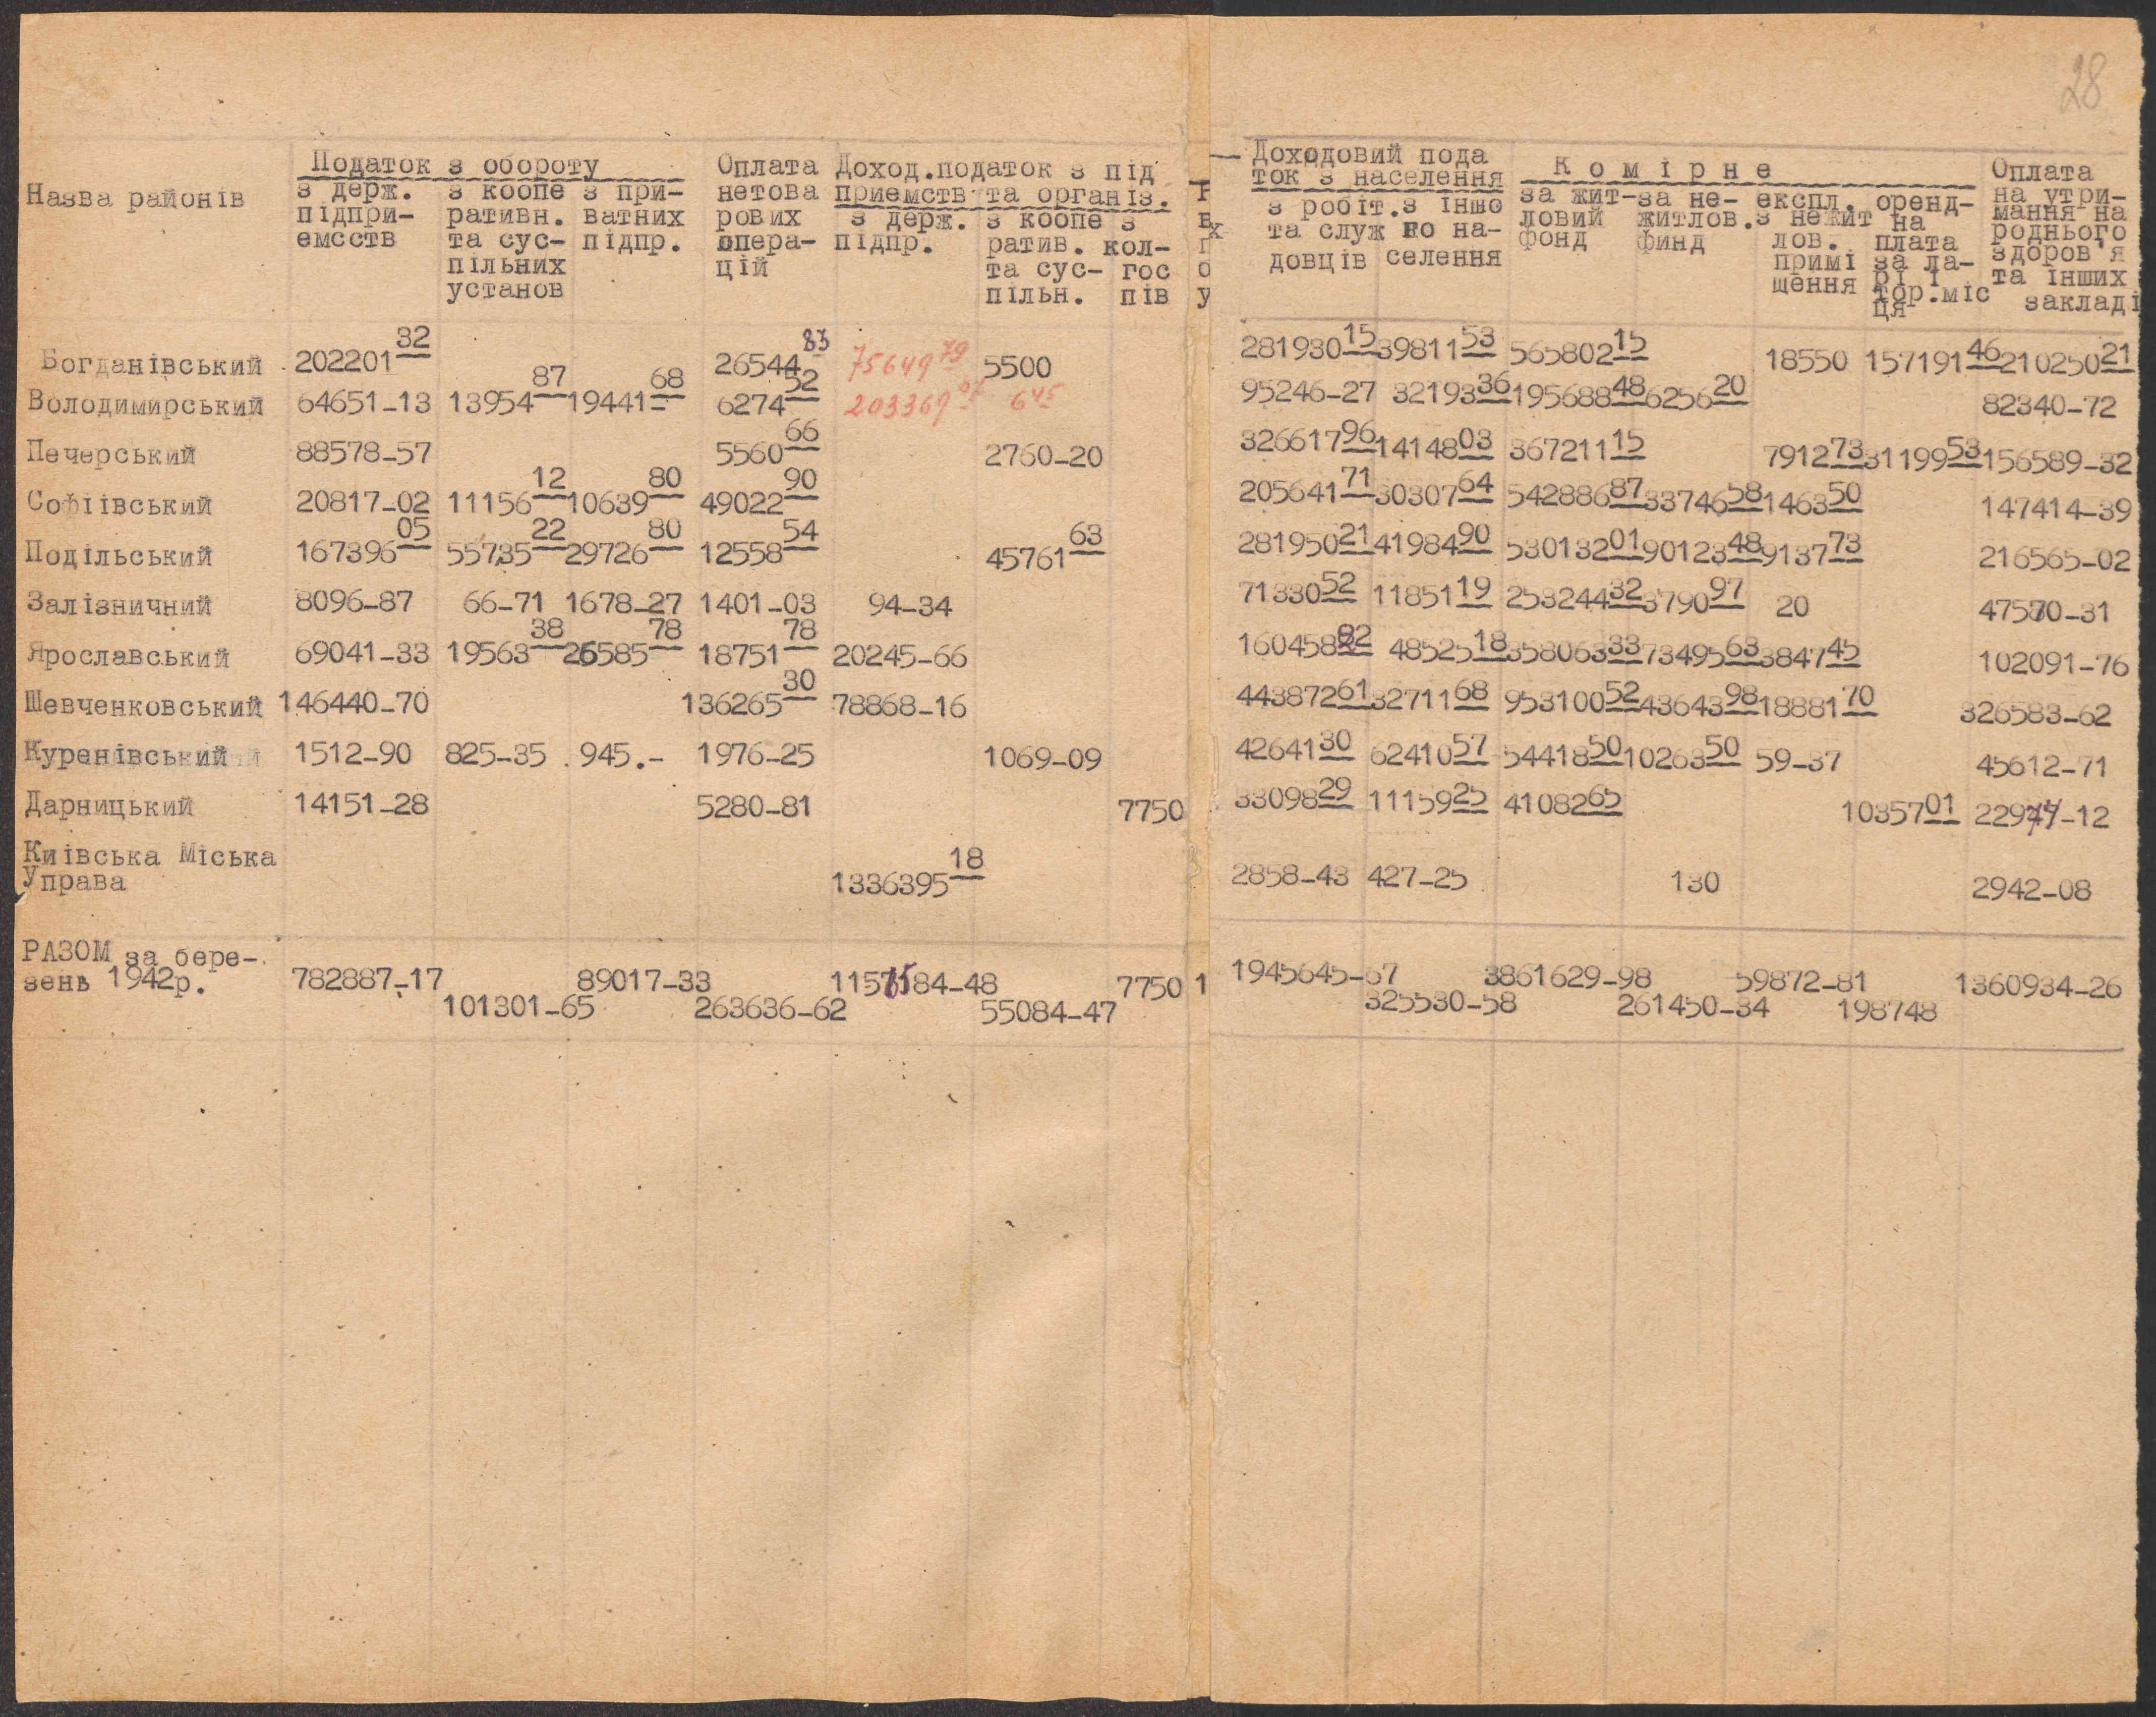 28
Назва районів
Податок з обороту
з держ. підпри- ємсств
з коопе ративн. та сус- пільних установ
з при- ватних підпр.
Оплата нетова рових опера- цій
Доход.податок з під приемств та організ.
з держ. підпр.
з коопе ратив. та сус- пільн.
з кол- гос пів
Доходовий пода ток з населення
з робіт. та служ довців
з іншо го на- селення
Комірне
за жит- ловий фонд
за не- житлов. финд
експл. з нежит лов. примі щення
оренд- на плата за ла- рі і тор.міс ця
Оплата на утри- мання на роднього здоров'я та інших закладі
Богданівський 202201 32 26544 83 75649 79 5500 281930 15 39811 53 565802 15 18550 157191 46 210250 21
Володимирський 64651-13 13954 87 19441 68 6274 52 203369 6 45 95246-27 32193 36 195688 48 6256 20 82340-72
Печерський 88578-57 5560 66 2760-20 326617 96 14148 03 367211 15 7912 73 31199 53 156589-32
Софіівський 20817-02 11156 12 10639 80 49022 90 205641 71 30307 64 542886 87 33746 58 1463 50 147414-39
Подільський 167396 05 55735 22 29726 80 12558 54 45761 63 281950 21 41984 90 530132 01 90123 48 9137 73 216565-02
Залізничний 8096-87 66-71 1678-27 1401-03 94-34 71330 52 11851 19 253244 32 3790 97 20 47570-31
Ярославський 69041-33 19563 38 26585 78 18751 78 20245-66 160458 82 48525 18 358063 33 73495 63 3847 45 102091-76
Шевченковський 146440-70 136265 30 78868-16 443872 61 32711 68 953100 52 43643 98 18881 70 326583-62
Куренівський 1512-90 825-35 945.- 1976-25 1069-09 42641 30 62410 57 54418 50 10263 50 59-37 45612-71
Дарницький 14151-28 5280-81 7750 33098 29 11159 25 41082 65 10357 01 22974-12
Київська Міська
Управа 1336395 18 2858-43 427-25 130 2942-08
РАЗОМ за бере-
зень 1942р. 782887-17 89017-33 1157584-48 7750 1 1945645-67 3861629-98 59872-81 1360934-26
101301-65 263636-62 55084-47 325530-58 261450-34 198748